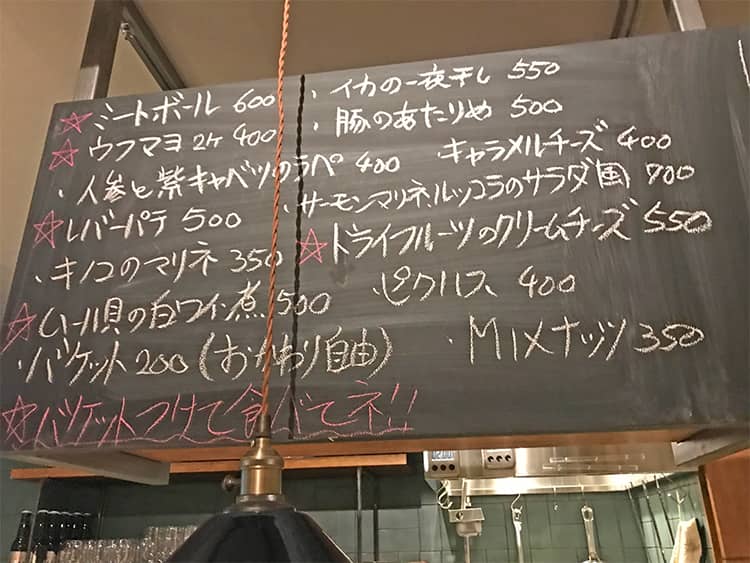 ☆ミートボール 600
☆ウフマヨ 2ヶ 400
・人参と紫キャベツのラペ 400
☆レバーパテ 500
・キノコのマリネ 350
☆ムール貝の白ワイン煮 500
・バケット 200 (おかわり自由)
☆バケットつけて食べてネ!!
・イカの一夜干し 550
・豚のあたりめ 500
キャラメルチーズ 400
・サーモンマリネ、ルッコラのサラダ風 700
☆ドライフルーツのクリームチーズ 550
・ピクルス 400
・MIXナッツ 350